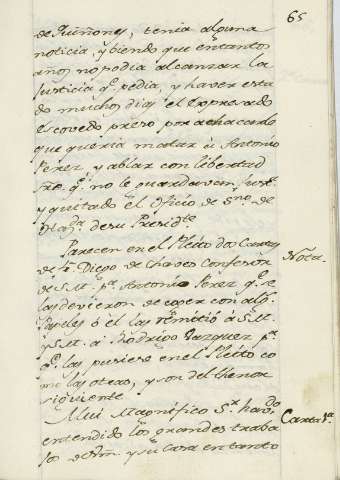 65
de Quiñones, tenia alguna
noticia, y biendo que en tantos
años no podia alcanzar la
Justicia q.e pedia, y haver esta
do muchos dias el expresado
Escovedo preso por achacarle
que queria matar à Antonio
Perez, y ablar con libertad
q.e no le guardavan Just.a
y quitado el Oficio de de
de su Presid.te
Parecen en el Pleito dos Cartas
Nota.
de Diego de Chaves Confesor
de S.M. p.a Antonio Perez q.e se
las devieron de coger con alg.s
Papeles ò èl las remitiò à S.M.
y S.M. à Rodrigo Vazquez p.a
q.e las pusiese en el Pleito co
mo las otras, y son del thenor
siguiente
Mui Magnifico S.r havdo
Carta 1.a
entendido los grandes traba
jos de Vm. y su casa en tanto